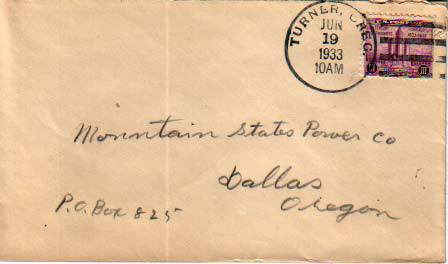 TURNER, OREG.
JUN
19
1933
10AM
Mountain States Power Co
Dallas
Oregon
P.O. Box 825